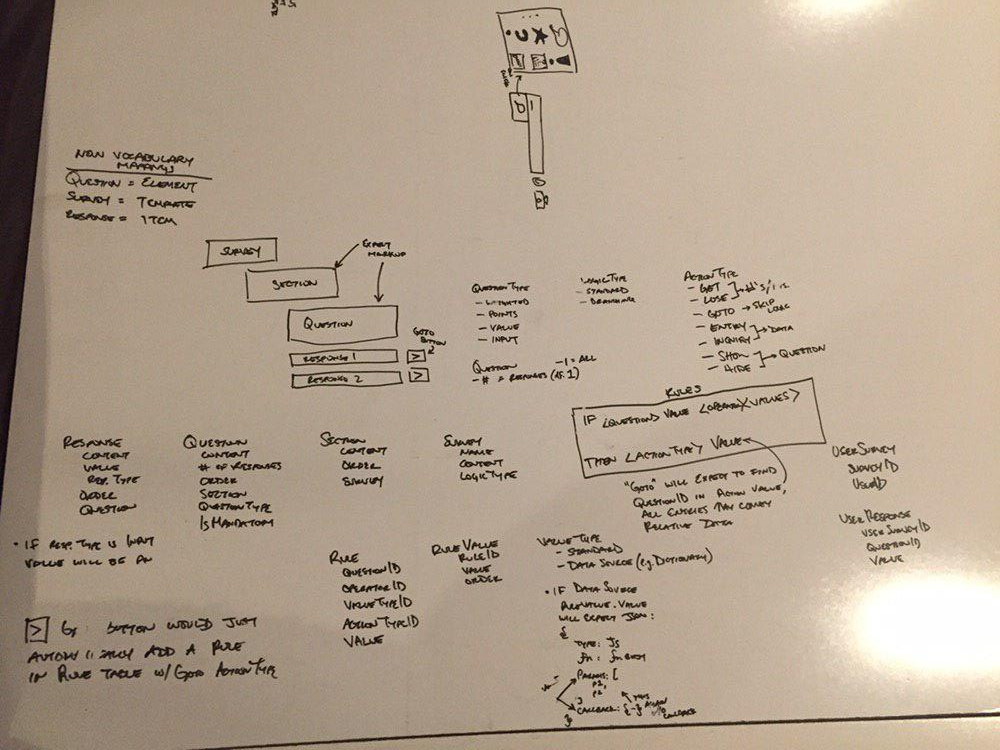 NEW VOCABULARY
MAPPINGS
QUESTION = ELEMENT
SURVEY = TEMPLATE
RESPONSE = ITEM
SURVEY
SECTION
QUESTION
RESPONSE 1 >
RESPONSE 2 >
MARKUP
GOTO
BUTTON
QUESTION TYPE
- WEIGHTED
- POINTS
- VALUE
- INPUT
LOGIC TYPE
- STANDARD
- BRANCHING
ACTION TYPE
- GET
- LOSE
- GOTO → SKIP LOGIC
- ENTRY
- INQUIRY → DATA
- SHOW
- HIDE → QUESTION
QUESTION -1 = ALL
- # = RESPONSES (DEF. 1)
RULES
IF <QUESTION> VALUE <OPERATOR> <VALUES>
THEN <ACTION TYPE> VALUE
"GOTO" WILL EXPECT TO FIND
QUESTIONID IN ACTION VALUE,
ALL ENTRIES MAY CONVEY
RELATIVE DATA
RESPONSE
CONTENT
VALUE
RESP. TYPE
ORDER
QUESTION
QUESTION
CONTENT
# OF RESPONSES
ORDER
SECTION
QUESTION TYPE
IS MANDATORY
SECTION
CONTENT
ORDER
SURVEY
SURVEY
NAME
CONTENT
LOGIC TYPE
USER SURVEY
SURVEY ID
USERID
USER RESPONSE
USER SURVEY ID
QUESTION ID
VALUE
• IF RESP. TYPE IS INPUT
VALUE WILL BE AN
RULE
QUESTION ID
OPERATOR ID
VALUE TYPE ID
ACTION TYPE ID
VALUE
RULE VALUE
RULE ID
VALUE
ORDER
VALUE TYPE
- STANDARD
- DATA SOURCE (e.g. DICTIONARY)
• IF DATA SOURCE
RULEVALUE.VALUE
WILL EXPECT JSON:
{
TYPE: JS
fn: fn BODY
PARAMS: [
P1,
P2
]
CALLBACK: { - }
CALLBACK
}
> BUTTON WOULD JUST
AUTOMATICALLY ADD A RULE
IN RULE TABLE W/ GOTO ACTION TYPE